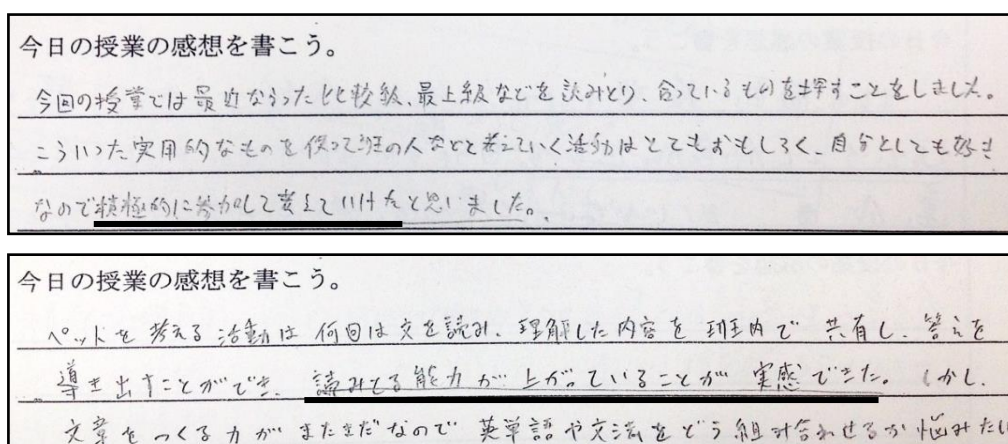 今日の授業の感想を書こう。
今回の授業では最近ならった比較級、最上級などを読みとり、合っているものを探すことをしました。
こういった実用的なものを使って班の人などと考えていく活動はとてもおもしろく、自分としても好き
なので積極的に参加して考えていけたと思いました。
今日の授業の感想を書こう。
ペットを考える活動は何回は文を読み、理解した内容を班内で共有し、答えを
導き出すことができ、読みとる能力が上がっていることが実感できた。しかし、
文章をつくる力がまだまだなので英単語や文法をどう組み合わせるか悩みた